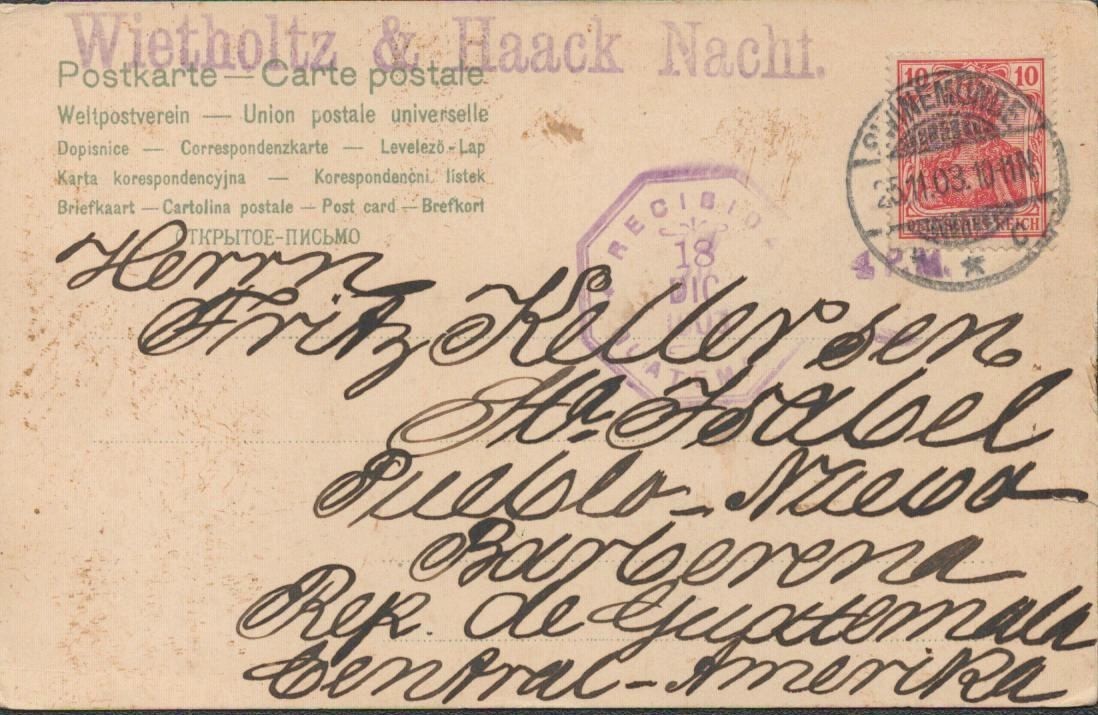 Wietholtz & Haack Nachf.
Postkarte — Carte postale
Weltpostverein — Union postale universelle
Dopisnice — Correspondenzkarte — Levelező-Lap
Karta korespondencyjna — Korespondenčni listek
Briefkaart — Cartolina postale — Post card — Brefkort
ОТКРЫТОЕ-ПИСЬМО
10 10
25.11.03. 10-11 N.
DEUTSCHES REICH
4 P.M.
18
DIC
1903
Herrn
Fritz
Sta. Isabel
Pueblo-Nuevo
Barberena
Rep. de Guatemala
Central-Amerika